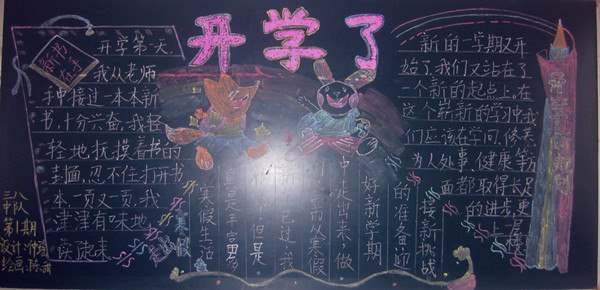 开学了
开学第一天,
我从老师
手中接过一本本新
书,十分兴奋,我轻
轻地抚摸着书的
封面,忍不住打开书
本,一页又一页,我
津津有味地
读起来.
三八
中队
第1期
设计:
绘画:陈
寒假
寒假生活
真是丰富多
但是
已过,我
们要从寒假
中走出来,做
好新学期
的准备,
接新挑战
新的一学期又开
始了,我们又站在了
一个新的起点上,在
这个崭新的学习中我
们应该在学问、修养
为人处事、健康等方
面都取得长足
的进步,更
上一层楼